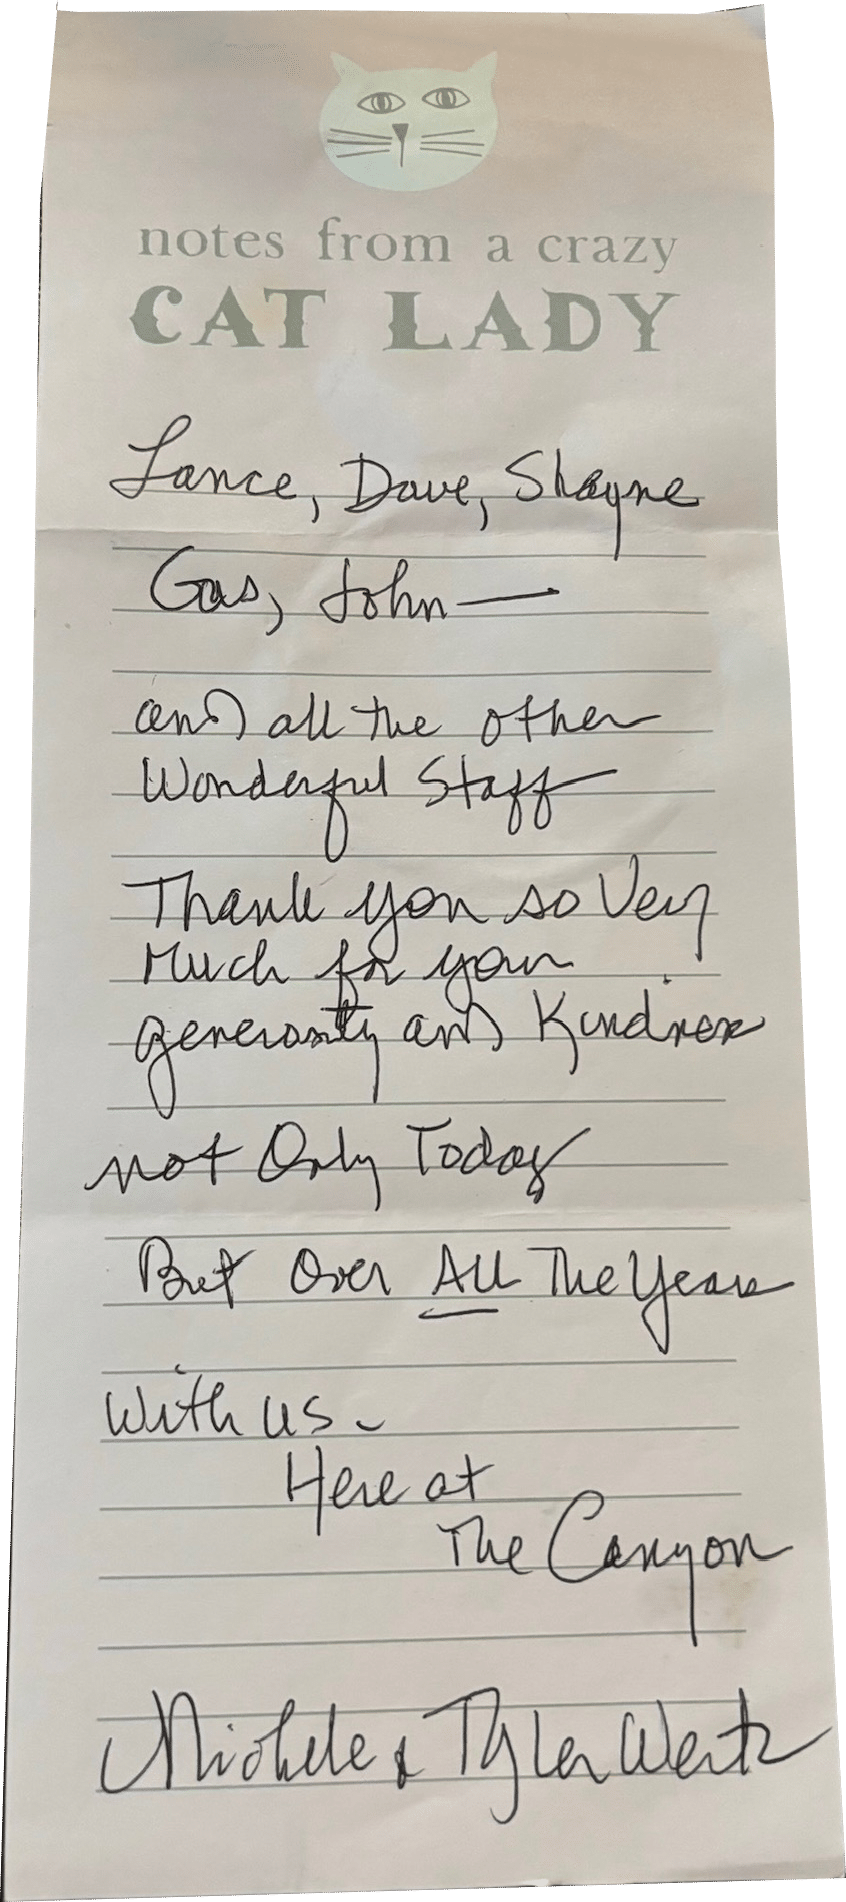 notes from a crazy
CAT LADY
Lance, Dave, Shayne
Gus, John—
and all the other
Wonderful Staff
Thank you so Very
Much for your
generosity and Kindness
not Only Today
But Over All The Years
With us -
Here at
The Canyon
Michele & Tyler Wertz